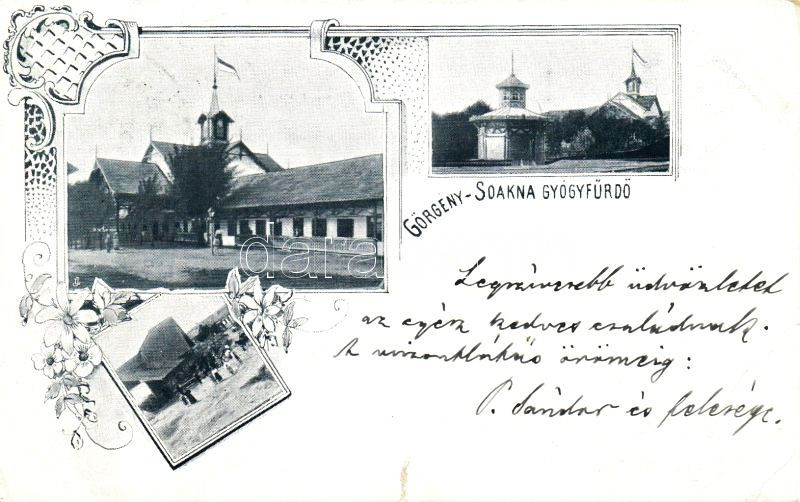 GÖRGÉNY-SOAKNA GYÓGYFÜRDŐ
Legszívesebb üdvözletet
az egész kedves családnak.
A viszontlátás örömeig:
P. Sándor és felesége.
dara